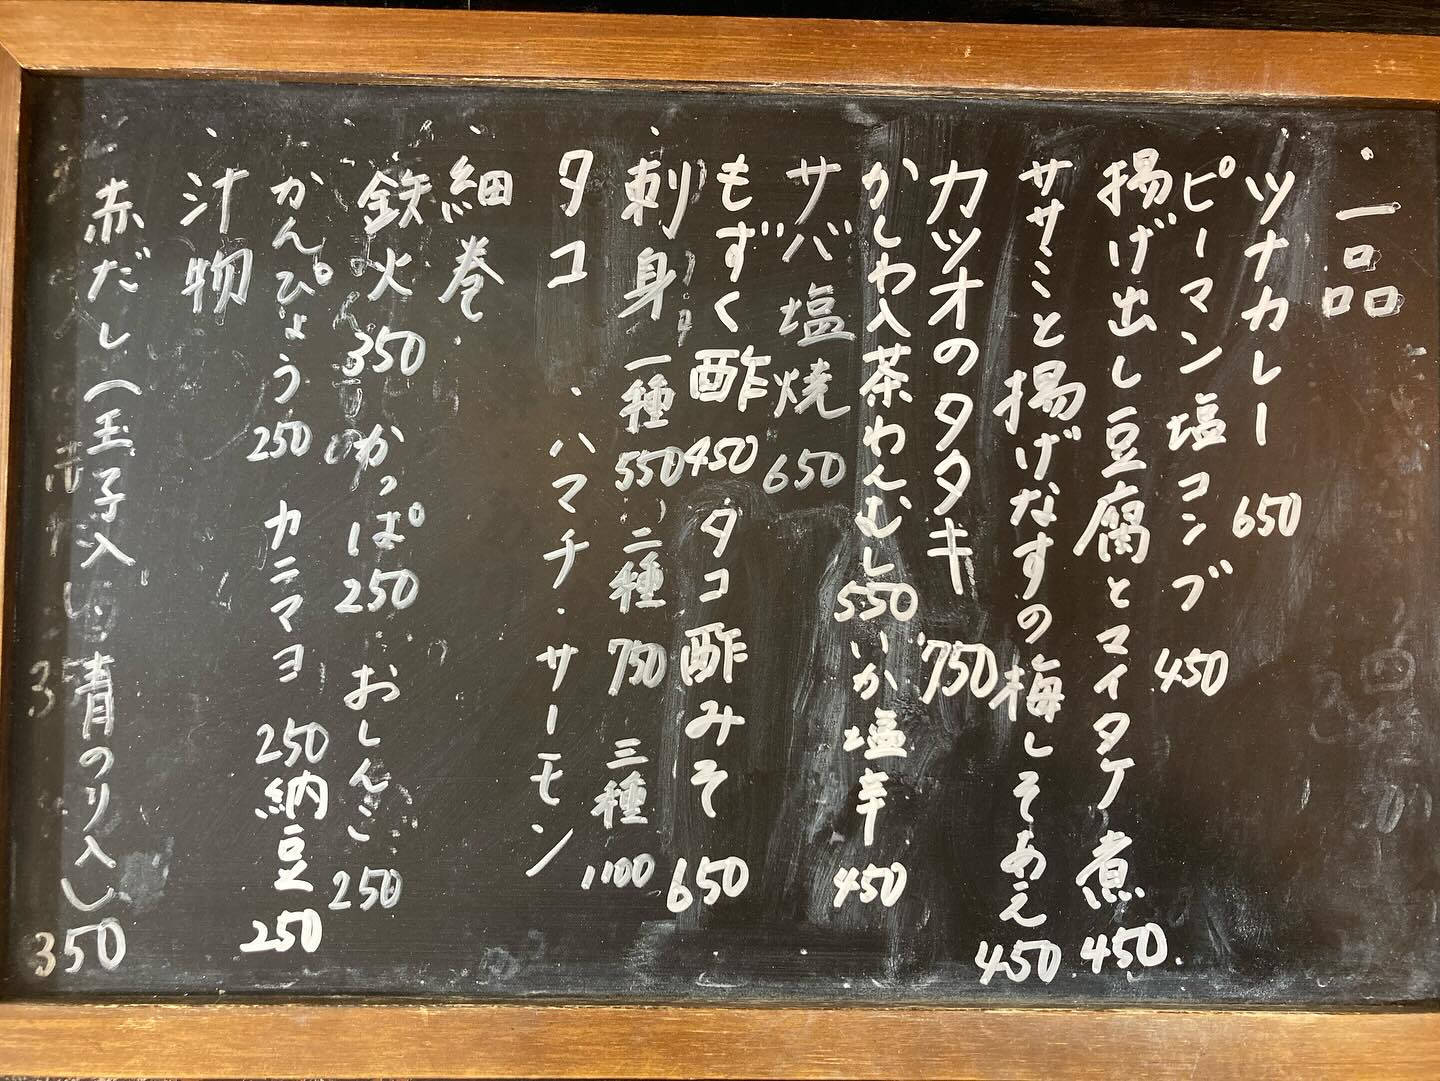 ・一品
ツナカレー 650
ピーマン塩コンブ 450
揚げ出し豆腐とマイタケ煮 450
ササミと揚げなすの梅しそあえ 450
カツオのタタキ 750
かしわ入茶わんむし 550 いか塩辛 450
サバ塩焼 650
もずく酢 450 タコ酢みそ 650
・刺身 一種 550 二種 750 三種 1100
タコ・ハマチ・サーモン
・細巻
鉄火 350 かっぱ 250 おしんこ 250
かんぴょう 250 カニマヨ 250 納豆 250
・汁物
赤だし(玉子入 青のり入) 350